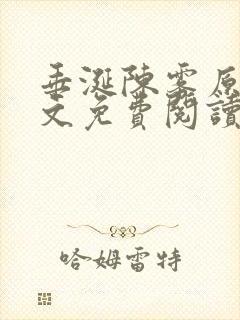 垂涎陳霧原
文免費閱讀
哈姆雷特